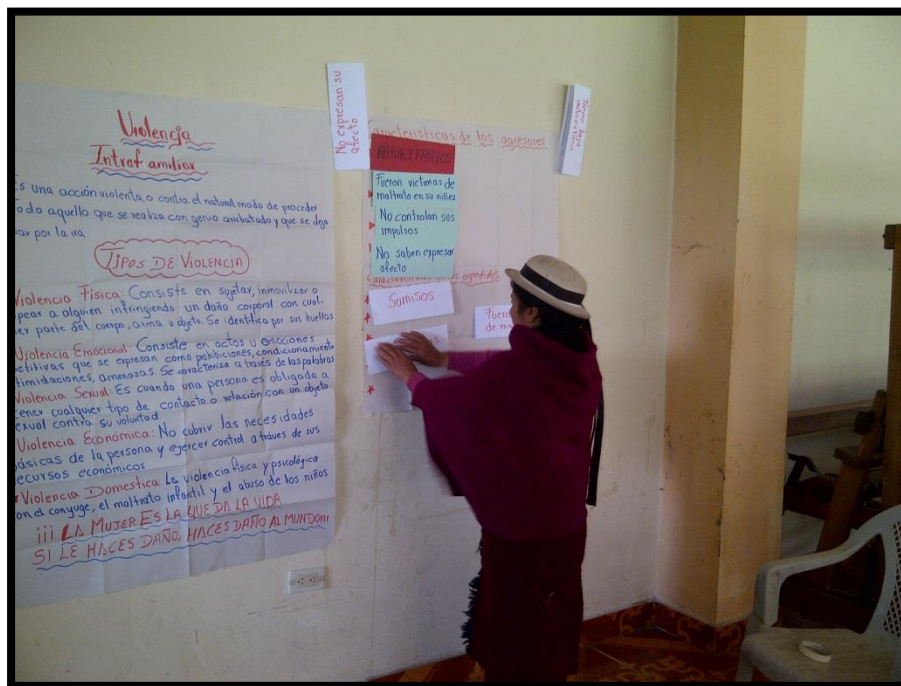 Violencia
Intrafamiliar
Es una acción violenta o contra el natural modo de proceder
Todo aquello que se realiza con genio arrebatado y que se deja
por la ira
TIPOS DE VIOLENCIA
Violencia Física: Consiste en sujetar, inmovilizar o
a alguien infringiendo un daño corporal con cual-
parte del cuerpo, arma u objeto. Se identifica por sus huellas
Violencia Emocional: Consiste en actos u omociones
que se expresan como pohibiciones, condicionamiento
amenazas. Se caracteriza a través de las palabras
Violencia Sexual: Es cuando una persona es obligada a
cualquier tipo de contacto o relación con un objeto
contra su voluntad.
Violencia Económica: No cubrir las necesidades
de la persona y ejercer control a traves de sus
recursos económicos
Violencia Domestica: La violencia física y psicológica
con el conyuge, el maltrato infantil y el abuso de los niños
¡¡¡ LA MUJER ES LA QUE DA LA VIDA
SI LE HACES DAÑO, HACES DAÑO AL MUNDO!!!
No expresan su
afecto
Características de los agresores
AUTORITARIOS
Fueron victimas de
maltrato en su niñez
No controlan sus
impulsos
No saben expresar
afecto
de los agredidos
Sumisas
de